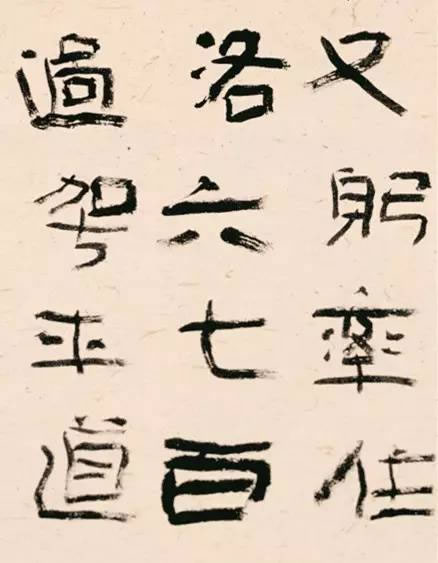 又躬率住
洛六七百
過平道